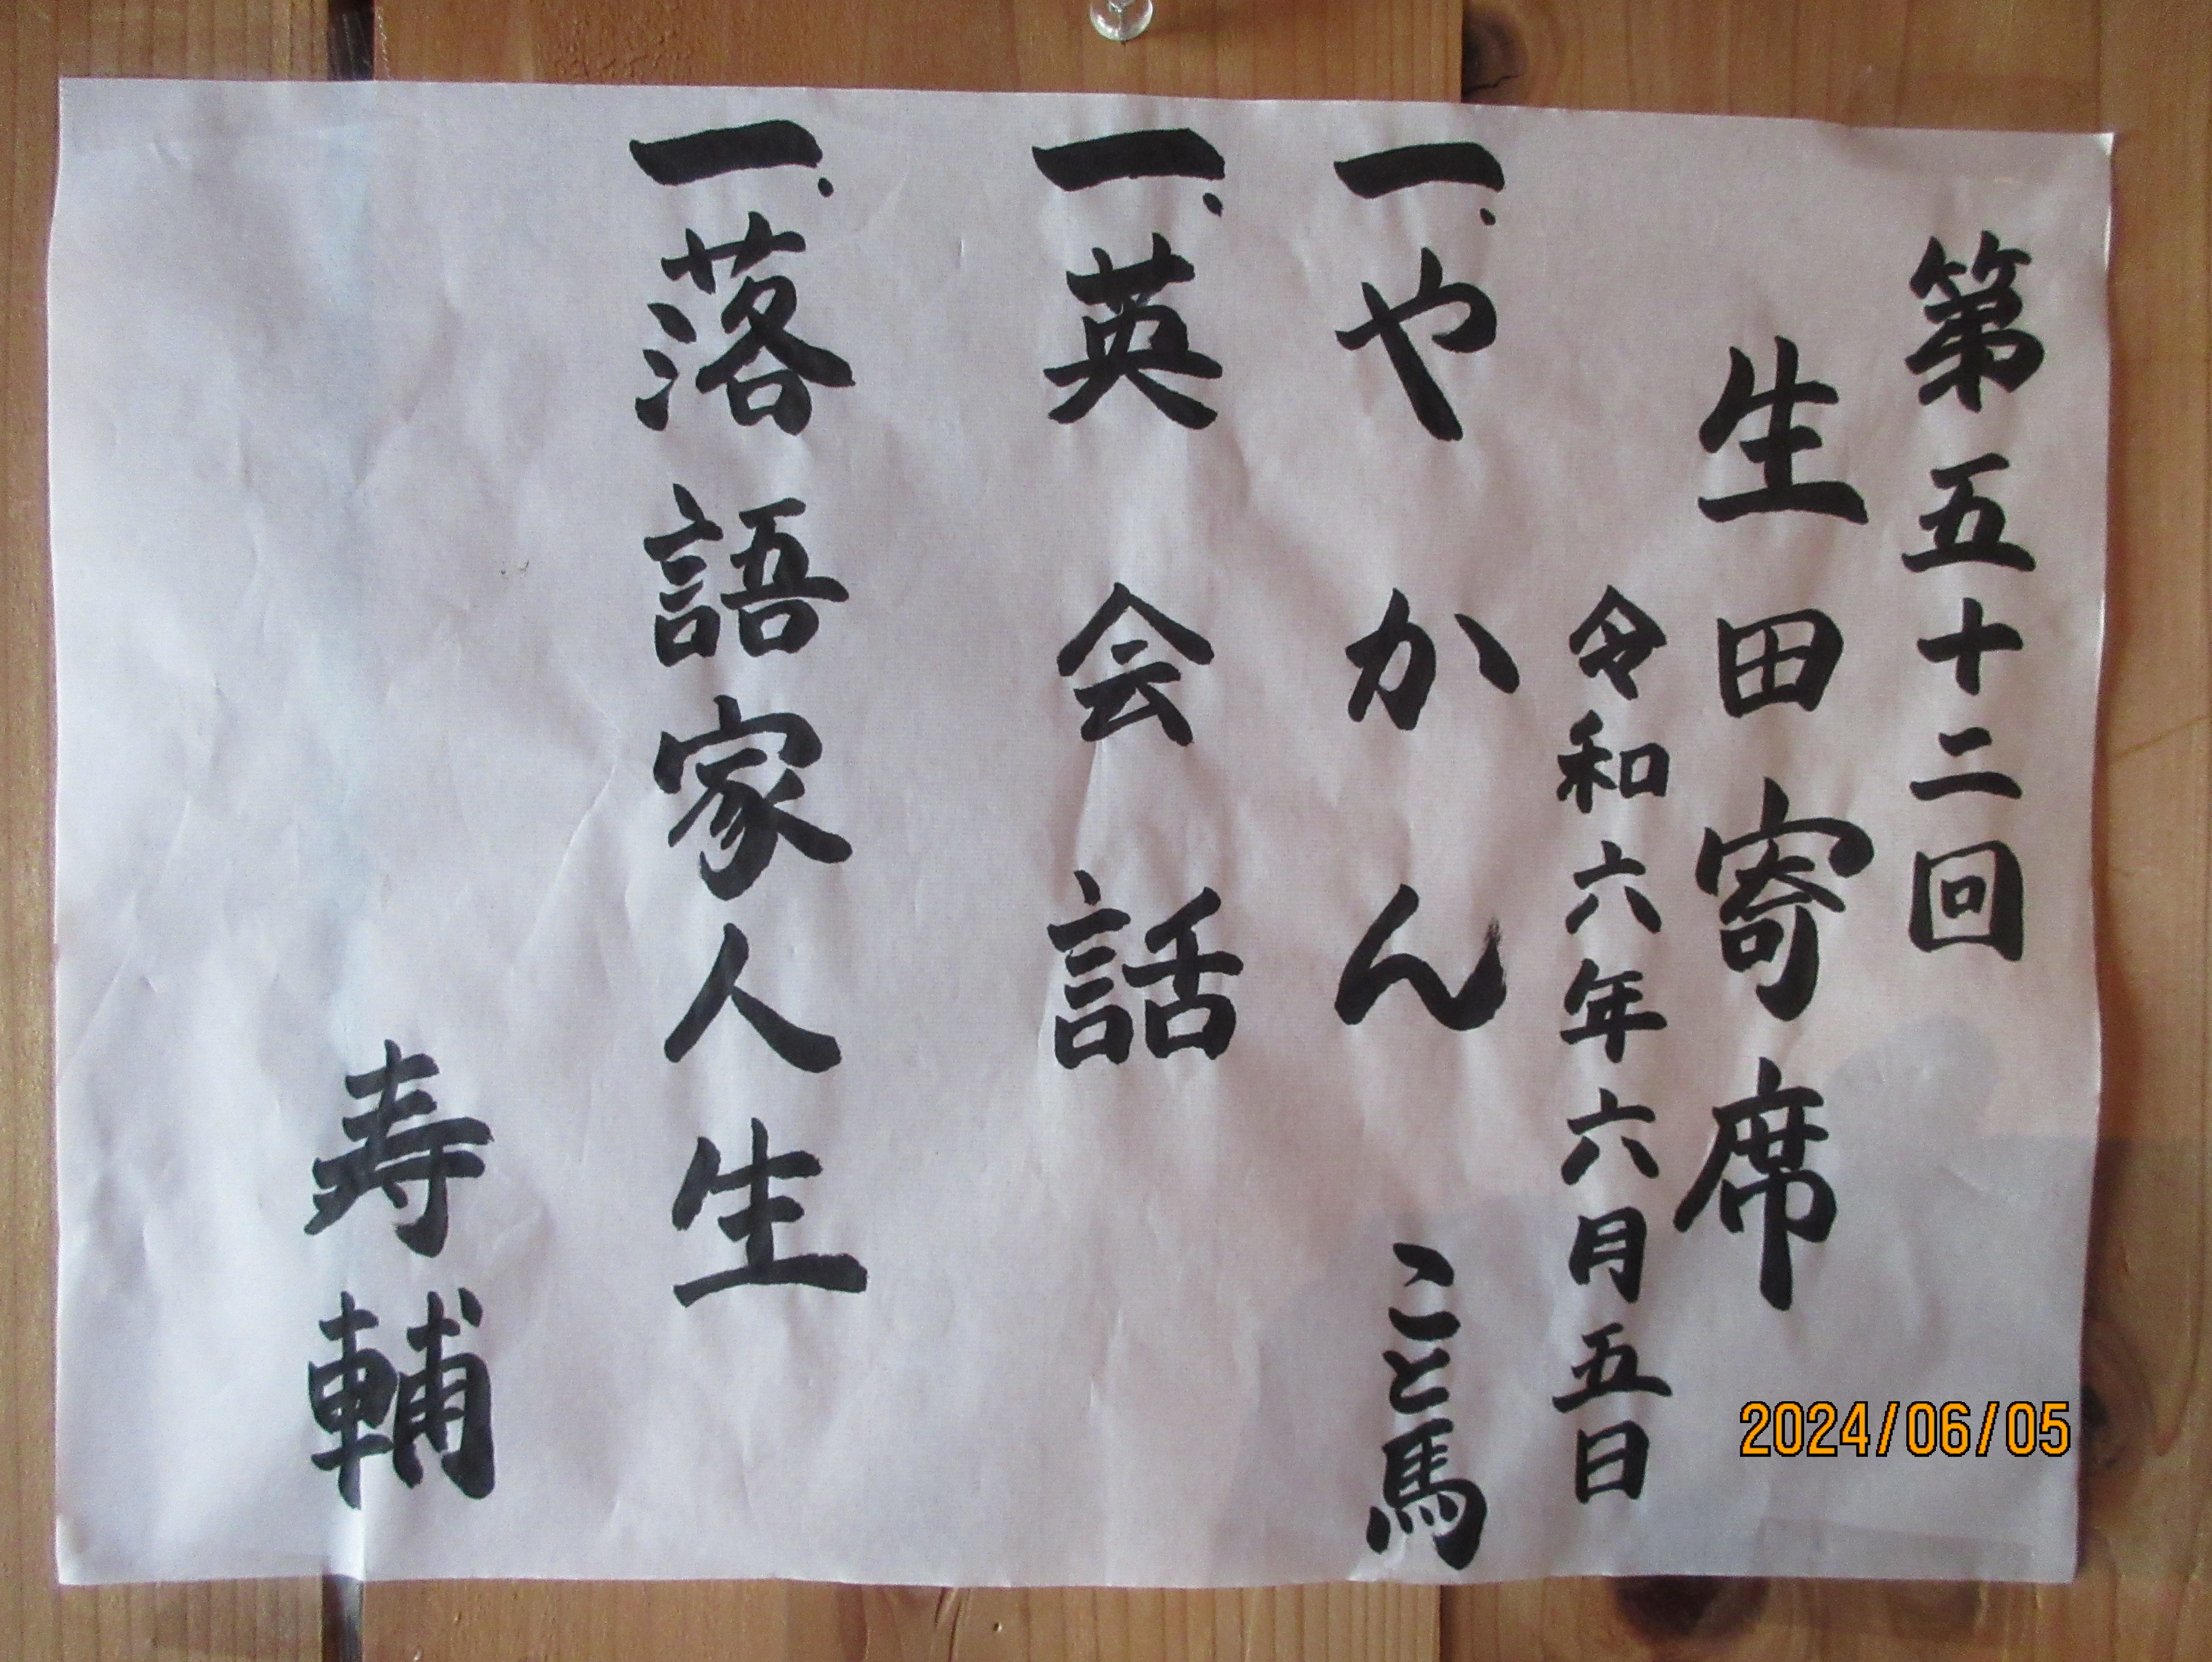 第五十二回
生田寄席
令和六年六月五日
一.やかん
こと馬
一.英会話
一.落語家人生
寿輔
2024/06/05